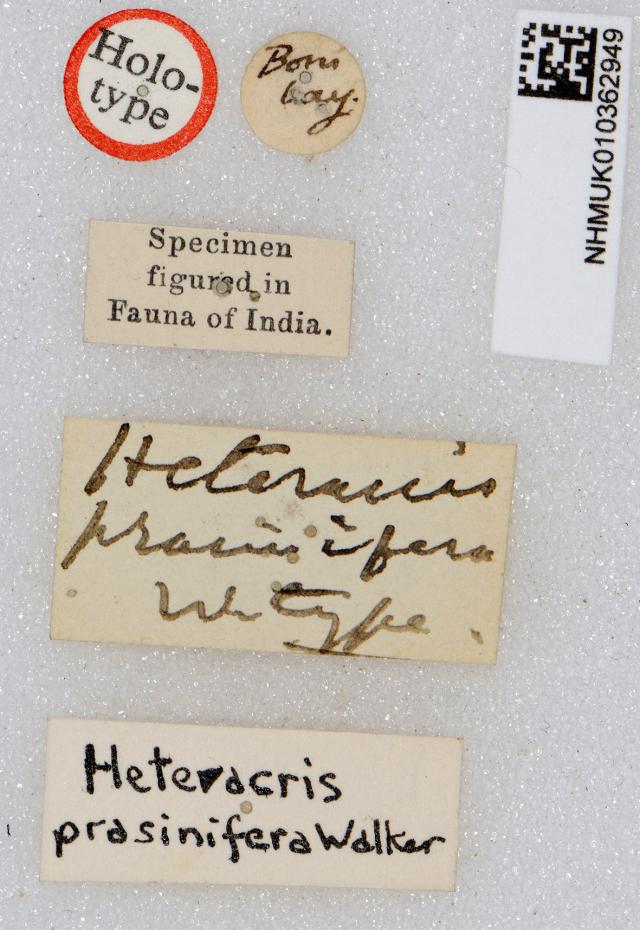 Holo-
type
Bom
bay.
NHMUK010362949
Specimen
figured in
Fauna of India.
Heteracris
prasinifera
Wk type.
Heteracris
prasinifera Walker